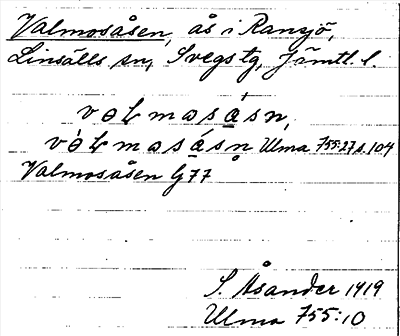 Valmosåsen, ås i Ransjö,
Linsälls sn, Svegs tg, Jämtl. l.
valmasasn,
vàlmasásn Ulma 755:27 s. 104
Valmosåsen G 77
S. Åsander 1919
Ulma 755:10